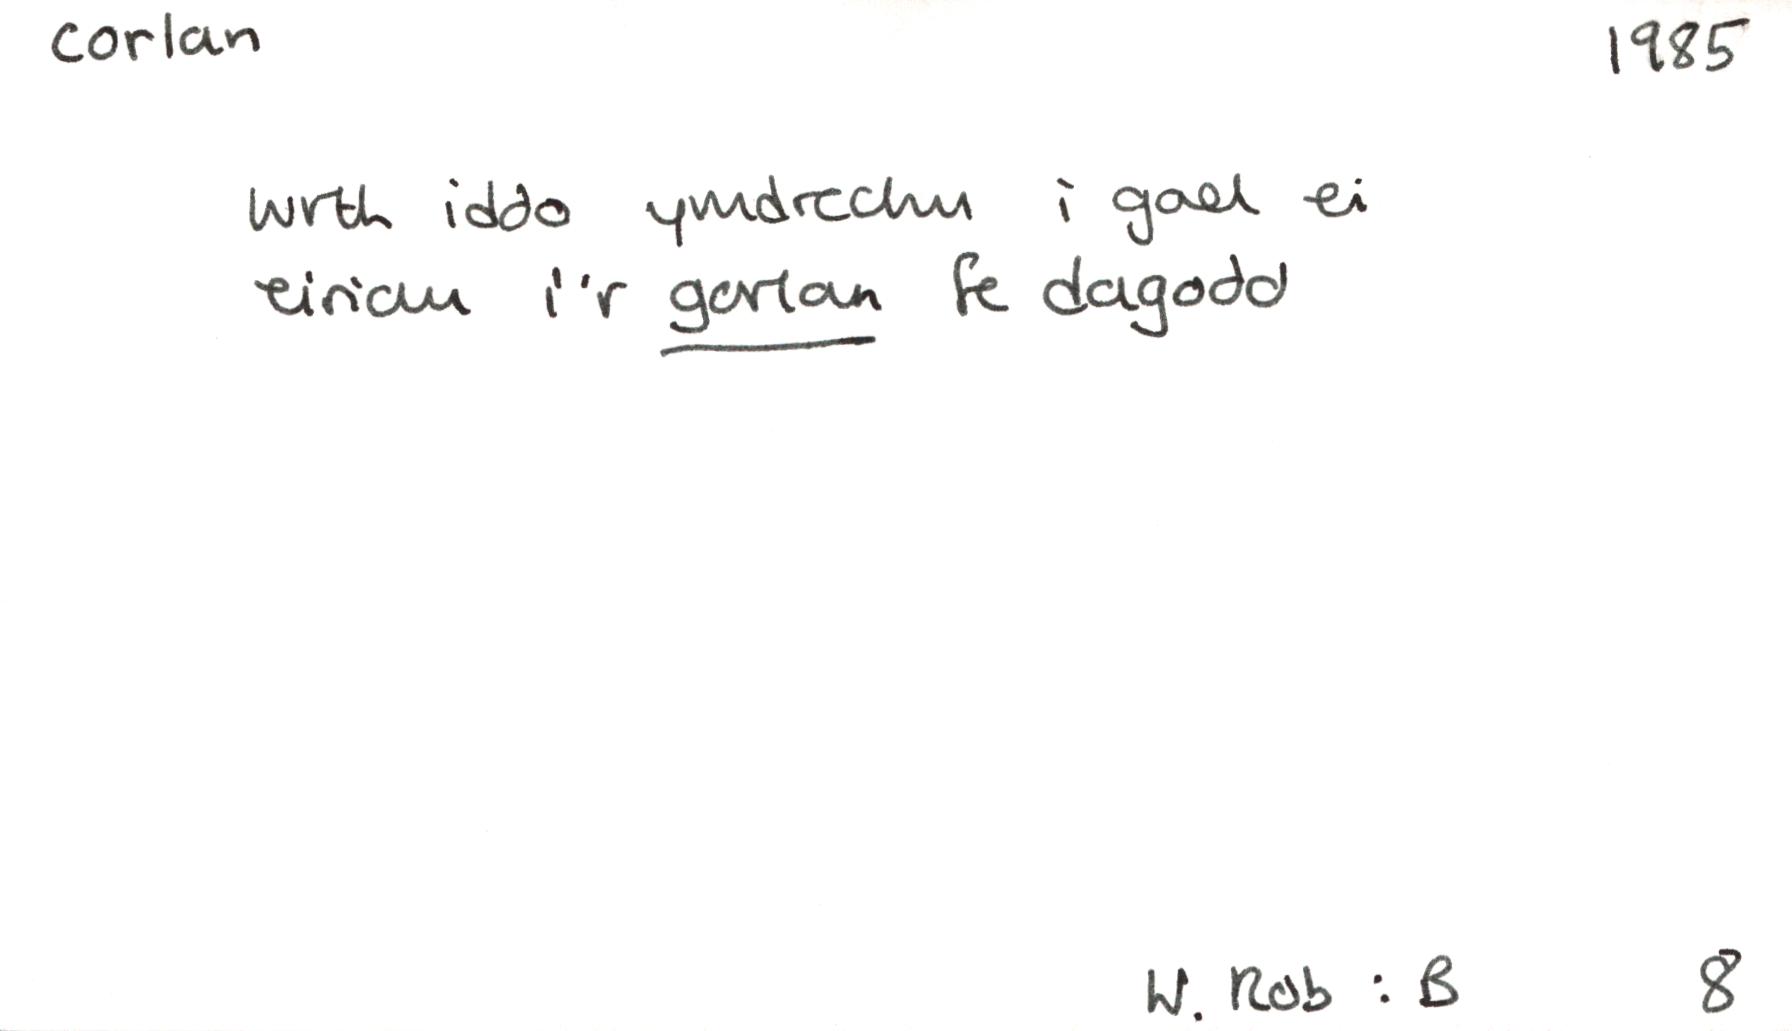 corlan 1985
wrth iddo ymdrechu i gael ei
eiriau i'r gorlan fe dagodd
W. Rob : B 8